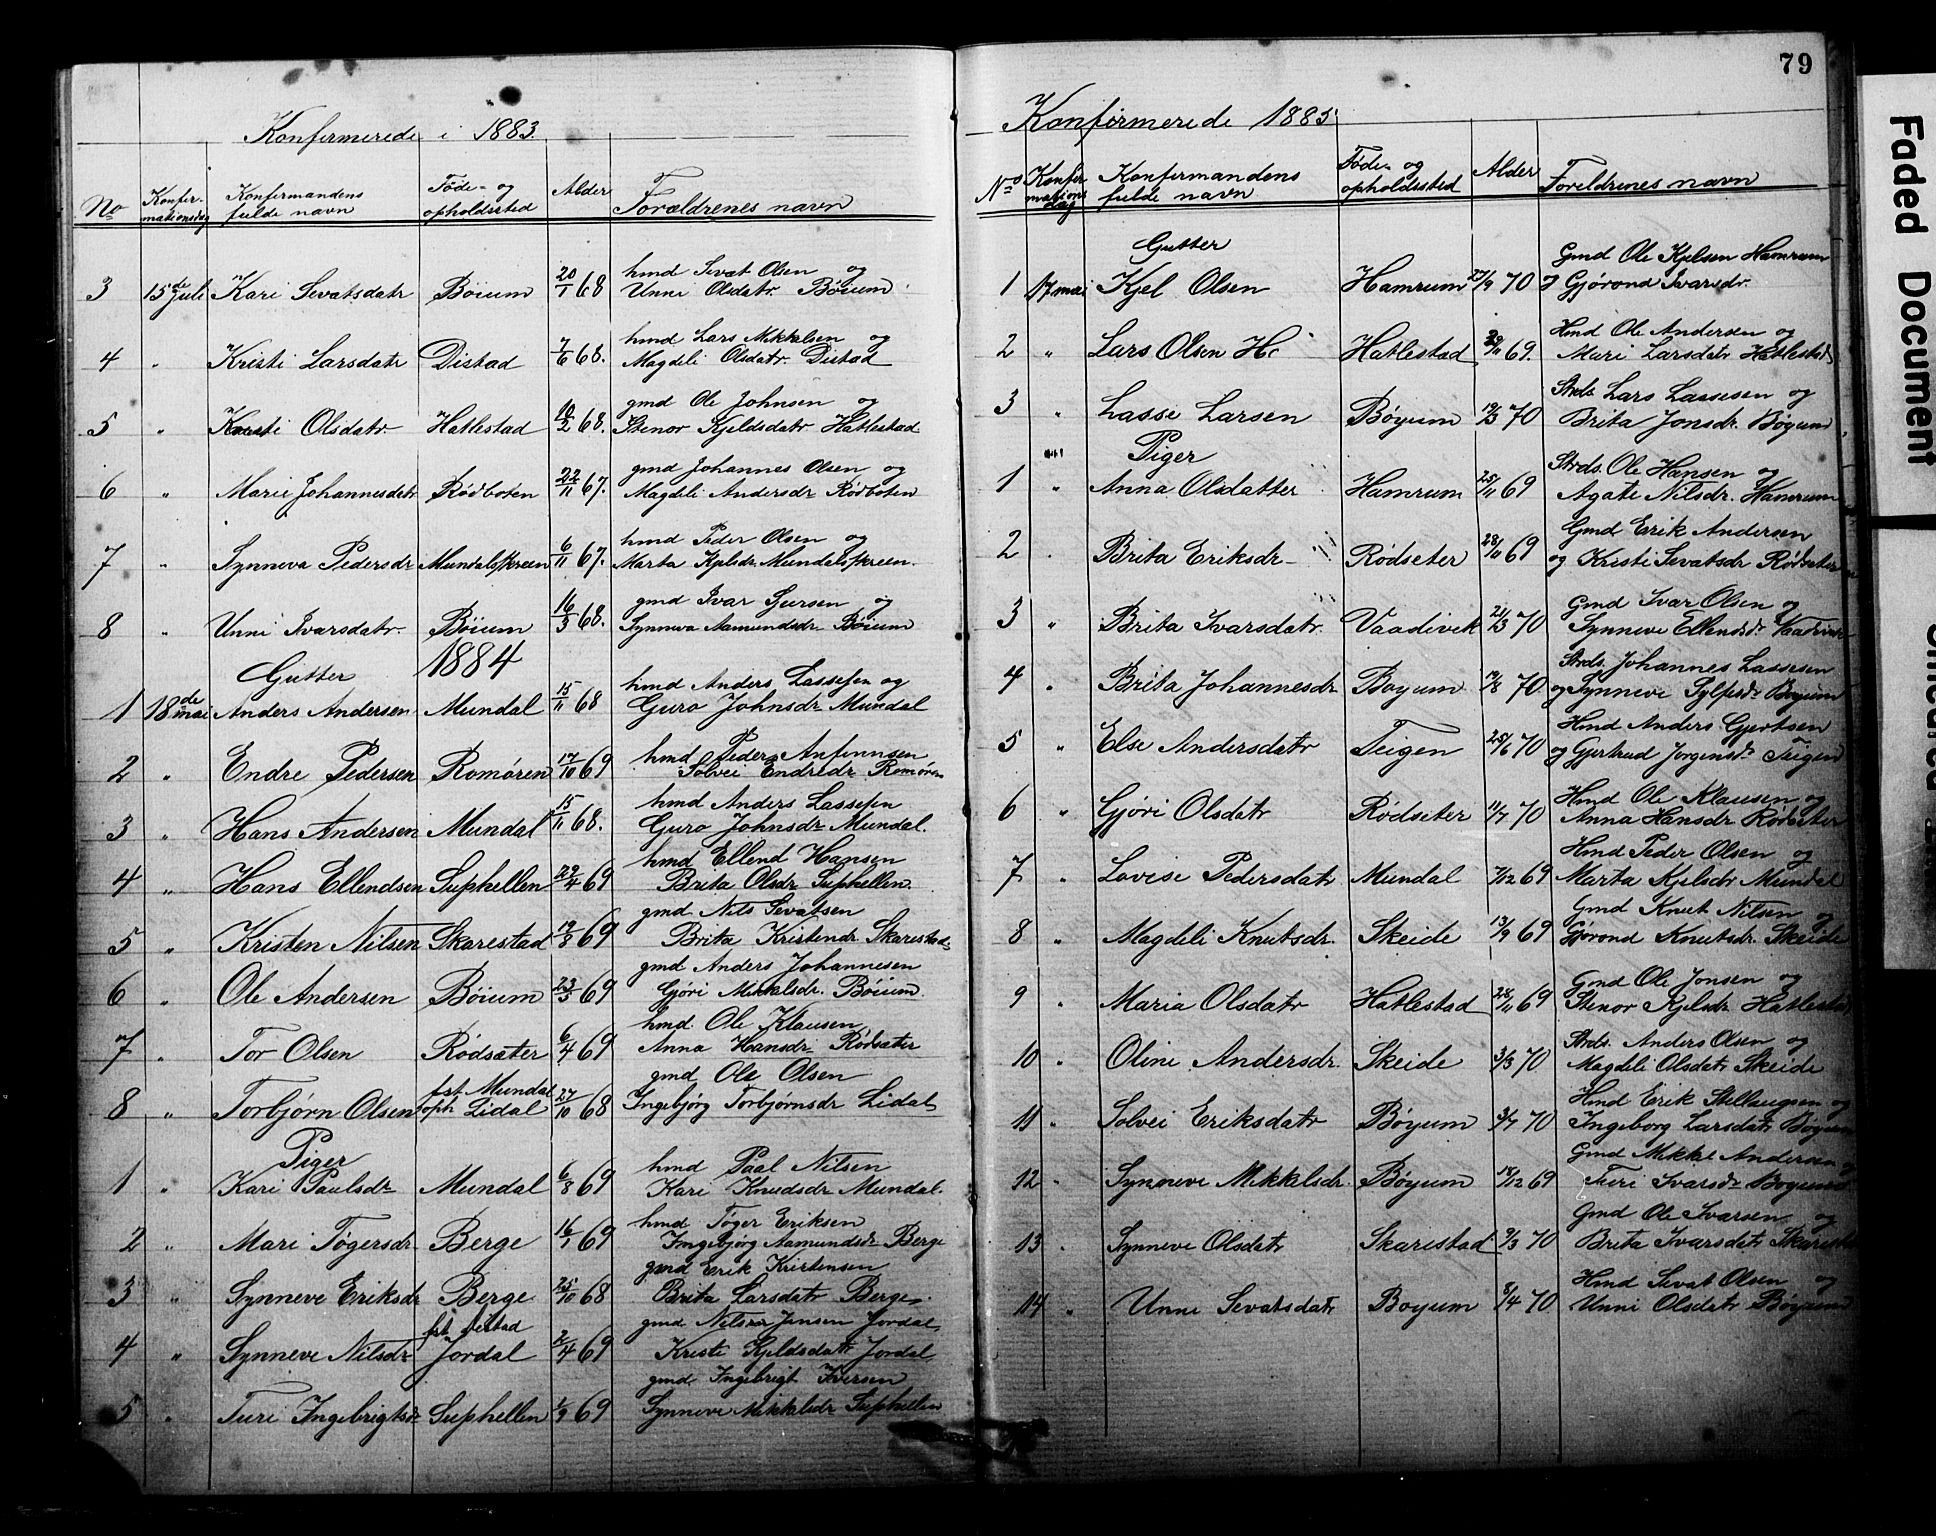 79
Konfirmerede i 1883.
No Konfirmationsdag Konfirmandens fulde navn Føde- og opholdssted Alder Forældrenes navn
hmd Sevat Olsen og
3 15de Juli Kari Sevatsdatr Böium 20/1 68 Unni Olsdatr. Böium
hmd Lars Mikkelsen og
4 " Kristi Larsdatr Distad 7/6 68. Magdeli Olsdatr. Distad
gmd Ole Johnsen og
5 " Kristi Olsdatr Hatlestad 10/2 68. Stenor Kjeldsdatr Hatlestad
gmd Johannes Olsen og
6 " Marie Johannesdatr Rödboten 22/11 67. Magdeli Andersdr Rödboten
hmd Peder Olsen og
7 " Synneva Pedersdr Mundalskreen 6/11 67. Marta Kjelsdr. Mundalskreen.
gmd Ivar Gursen og
8 " Unni Ivarsdatr. Böium 16/3 68. Synneva Aamundsdr Böium
Gutter 1884
hmd Anders Lassesen og
1 18de mai Anders Andersen Mundal 15/11 68 Guro Johnsdr Mundal
hmd Peder Anfinnsen
2 " Endre Pedersen Romören 17/10 69 Solvei Endredr Romören
hmd Anders Lassesen
3 " Hans Andersen Mundal 15/11 68. Guro Johnsdr Mundal.
hmd Ellend Hansen
4 " Hans Ellendsen Suphellen 22/4 69 Brita Olsdr Suphellen.
gmd Nils Sevatsen
5 " Kristen Nilsen Skarestad 19/8 69 Brita Kristendr. Skarestad
gmd Anders Johannesen
6 " Ole Andersen Böium 23/5 69 Gjöri Mikkelsdr. Böium.
hmd. Ole Klausen
7 " Tor Olsen Rödsæter 6/4 69 Anna Hansdr Rödsæter
gmd Ole Olsen
8 " Torbjörn Olsen fst Mundal oph Lidal 27/10 68 Ingebjörg Torbjörnsdr Lidal
Piger
hmd Paal Nilsen
1 " Kari Paulsdr Mundal 6/8 69 Kari Knudsdr Mundal.
hmd Töger Eriksen
2 " Mari Tögersdr Berge 16/1 69 Ingebjörg Aamundsdr Berge
gmd Erik Kristensen
3 " Synneve Eriksdr Berge 25/10 68 Brita Larsdatr Berge.
gmd Nils Jensen Jordal
4 " Synneve Nilsdr Jordal 2/4 69 Kristi Kjeldsdatr Jordal
gmd. Ingebrigt Iversen
5 " Turi Ingebrigtsdr Suphellen 1/9 69 Synneve Mikkelsdr Suphellen
Konfirmerede 1885.
No Konfirmationsdag Konfirmandens fulde navn Føde- og opholdssted Alder Foreldrenes navn
Gutter
Gmd Ole Kjelsen Hamrum
1 17 mai Kjel Olsen Hamrum 27/9 70 & Gjörond Ivarsdr.
Hmd Ole Andersen og
2 " Lars Olsen H. Hatlestad 29/11 69. Mari Larsdatr Hatlestad
Strds. Lars Lassesen og
3 " Lasse Larsen Böyum 19/3 70 Brita Jonsdr. Böyum
Piger
Strds. Ole Hansen og
1 " Anna Olsdatter Hamrum 25/11 69 Agate Nilsdr. Hamrum
Gmd Erik Andersen
2 " Brita Eriksdr Rödseter 28/11 69 og Kristi Sevatsdr Rödseter
Gmd Ivar Olsen og
3 " Brita Ivarsdatr. Vaadivek 21/3 70 Synneve Ellendsdr
Strds. Johannes Lassesen
4 " Brita Johannesdr Boyum 19/8 70 og Synneve Sylfesdr Boyum
Hmd Anders Gjertsen
5 " Else Andersdatr Teigen 25/6 70 og Gjertrud Jorgensdr Teigen
Hmd Ole Klausen og
6 " Gjöri Olsdatr Rödseter 11/7 70 Anna Hansdr Rödseter
Hmd Peder Olsen og
7 " Lovise Pedersdatr Mundal 7/12 69 Marta Kjelsdr Mundal
Gmd Knut Nilsen og
8 " Magdeli Knutsdr. Skeide 13/9 69 Gjörond Knutsdr. Skeide
Gmd Ole Jonsen og
9 " Maria Olsdatr Hatlestad 28/11 69 Stenor Kjelsdr Hatlestad
Strds. Anders Olsen og
10 " Oline Andersdr. Skeide 3/3 70 Magdeli Olsdatr Skeide
Hmd Erik Stellaugsen og
11 " Solvei Eriksdatr Böyum 3/7 70 Ingeborg Larsdatr Boyum
Gmd Mikkel Andersen
12 " Synneve Mikkelsdr. Böyum 18/12 69 Turi Ivarsdr Boyum
Gmd Ole Ivarsen og
13 " Synneve Olsdatr Skarestad 9/3 70 Brita Ivarsdatr Skarestad
Hmd Sevat Olsen og
14 " Unni Sevatsdatr Boyum 8/4 70 Unni Olsdatr Böyum
Faded Document